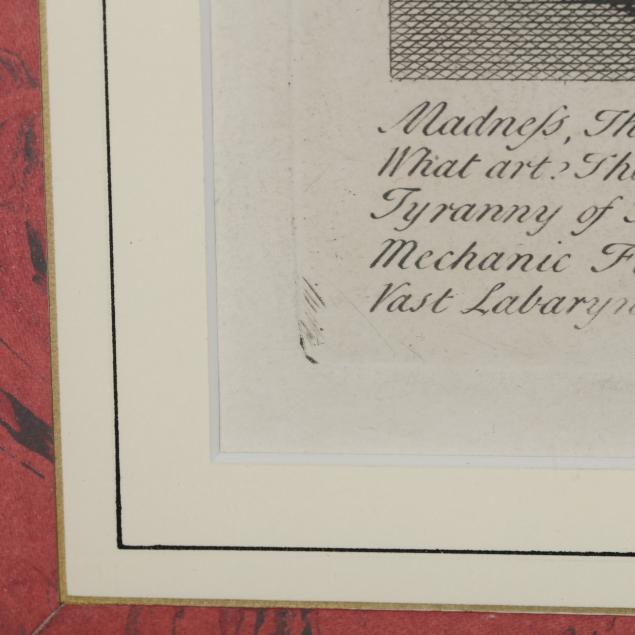 Madneſs, Th
What art? Tho
Tyranny of
Mechanic F
Vast Labaryn